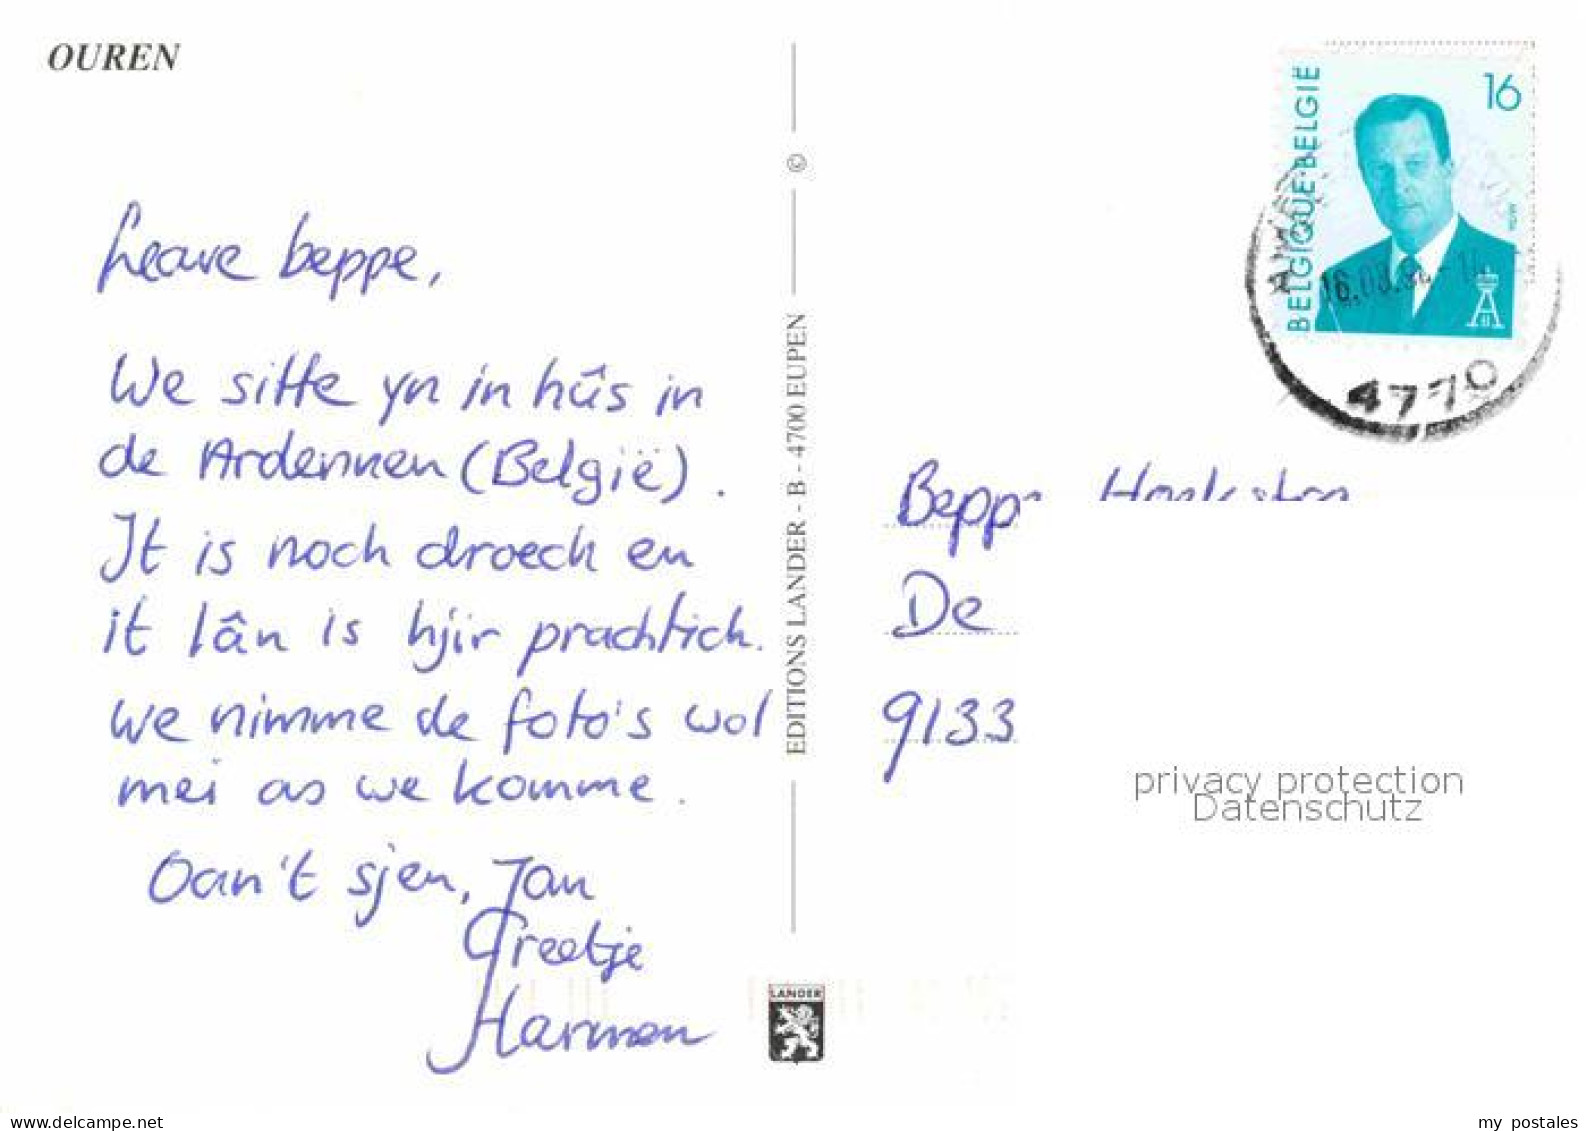 OUREN
Leave beppe,
We sitte yn in hûs in
de Ardennen (België).
It is noch droech en
it lân is hjir prachtich.
We nimme de foto's wol
mei as we komme.
Oan't sjen, Jan
Greetje
Harmen
©
EDITIONS LANDER - B - 4700 EUPEN
LANDER
BELGIQUE-BELGIË
16
MVTM
4770
De
9133
privacy protection
Datenschutz
www.delcampe.net
my_postales